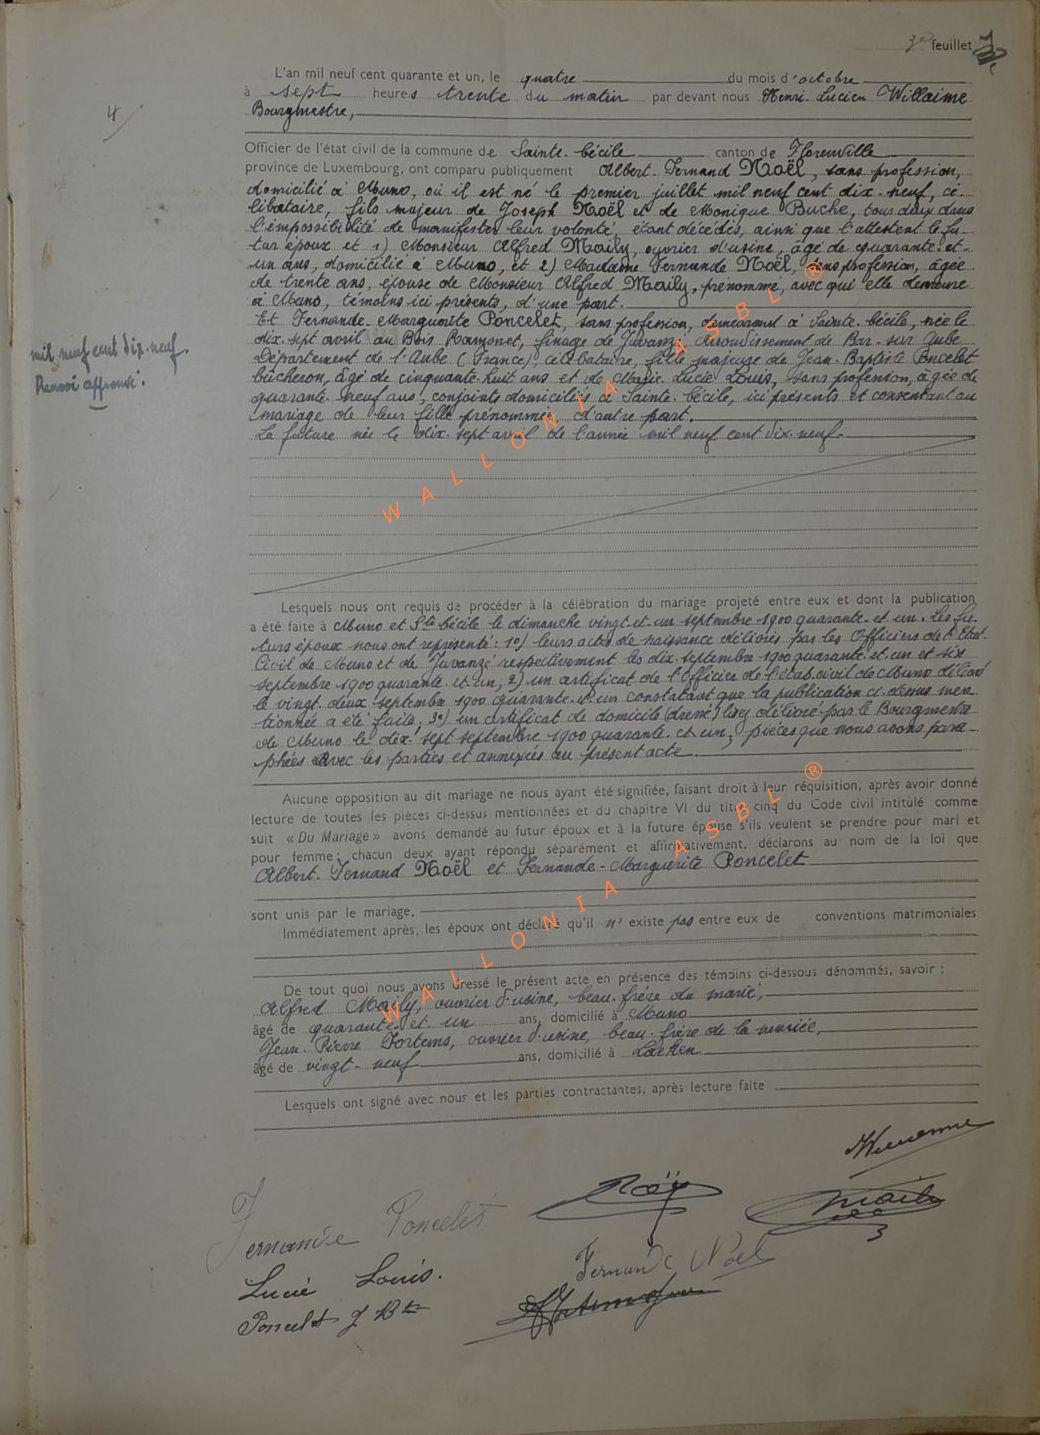 3e feuillet
4
L'an mil neuf cent quarante et un, le quatre du mois d'octobre
à sept heures trente du matin par devant nous Henri-Lucien Willaime
Bourgmestre,
Officier de l'état civil de la commune de Sainte-Cécile canton de Florenville
province de Luxembourg, ont comparu publiquement Albert-Fernand Noël, sans profession,
domicilié à Muno, où il est né le premier juillet mil neuf cent dix-neuf, cé-
libataire, fils majeur de Joseph Noël et de Monique Buche, tous deux dans
l'impossibilité de manifester leur volonté, étant décédés, ainsi que l'attestent le fu-
tur époux et 1) Monsieur Alfred Maily, ouvrier d'usine, âgé de quarante-et-
un ans, domicilié à Muno, et 2) Madame Fernande Noël, sans profession, âgée
de trente ans, épouse de Monsieur Alfred Maily, prénommé, avec qui elle demeure
à Muno, témoins ici présents, d'une part.
Et Fernande-Marguerite Poncelet, sans profession, demeurant à Sainte-Cécile, née le
dix-sept avril au Bois Ramonet, finage de Juvanzé, Arrondissement de Bar-sur Aube
Département de l'Aube (France), célibataire, fille majeure de Jean-Baptiste Poncelet
bûcheron, âgé de cinquante-huit ans et de Marie-Lucie Louis, sans profession, âgée de
quarante-neuf ans, conjoints domiciliés à Sainte-Cécile, ici présents et consentant au
mariage de leur fille prénommée d'autre part.
La future née le dix-sept avril de l'année mil neuf cent dix-neuf
mil neuf cent dix-neuf
Renvoi approuvé.
Lesquels nous ont requis de procéder à la célébration du mariage projeté entre eux et dont la publication
a été faite à Muno et Ste Cécile le dimanche vingt et un septembre 1900 quarante-et-un. Les fu-
turs époux nous ont représenté: 1°) leurs actes de naissance délivrés par les Officiers de l'Etat-
Civil de Muno et de Juvanzé respectivement les dix-septembre 1900 quarante-et-un et six
septembre 1900 quarante-et-un, 2) un certificat de l'Officier de l'état civil de Muno délivré
le vingt-deux septembre 1900 quarante-et-un constatant que la publication ci-dessus men-
tionnée a été faite, 3°) un certificat de domicile délivré par le Bourgmestre
de Muno le dix-sept septembre 1900 quarante-et-un; pièces que nous avons para-
phées avec les parties et annexées au présent acte.
Aucune opposition au dit mariage ne nous ayant été signifiée, faisant droit à leur réquisition, après avoir donné
lecture de toutes les pièces ci-dessus mentionnées et du chapitre VI du titre cinq du Code civil intitulé comme
suit « Du Mariage » avons demandé au futur époux et à la future épouse s'ils veulent se prendre pour mari et
pour femme; chacun deux ayant répondu séparément et affirmativement, déclarons au nom de la loi que
Albert-Fernand Noël et Fernande-Marguerite Poncelet
sont unis par le mariage.
Immédiatement après, les époux ont déclaré qu'il n'existe pas entre eux de conventions matrimoniales
De tout quoi nous avons dressé le présent acte en présence des témoins ci-dessous dénommés, savoir :
Alfred Maily, ouvrier d'usine, beau-frère du marié,
âgé de quarante-et-un ans, domicilié à Muno
Jean-Pierre Fortems, ouvrier d'usine, beau-frère de la mariée,
âgé de vingt-neuf ans, domicilié à Laeken
Lesquels ont signé avec nous et les parties contractantes, après lecture faite
Noël
Maily
Fernande Poncelet
Fernande Noël
Lucie Louis.
Poncelet J Bte
WALLONIA ASBL ®
WALLONIA ASBL ®